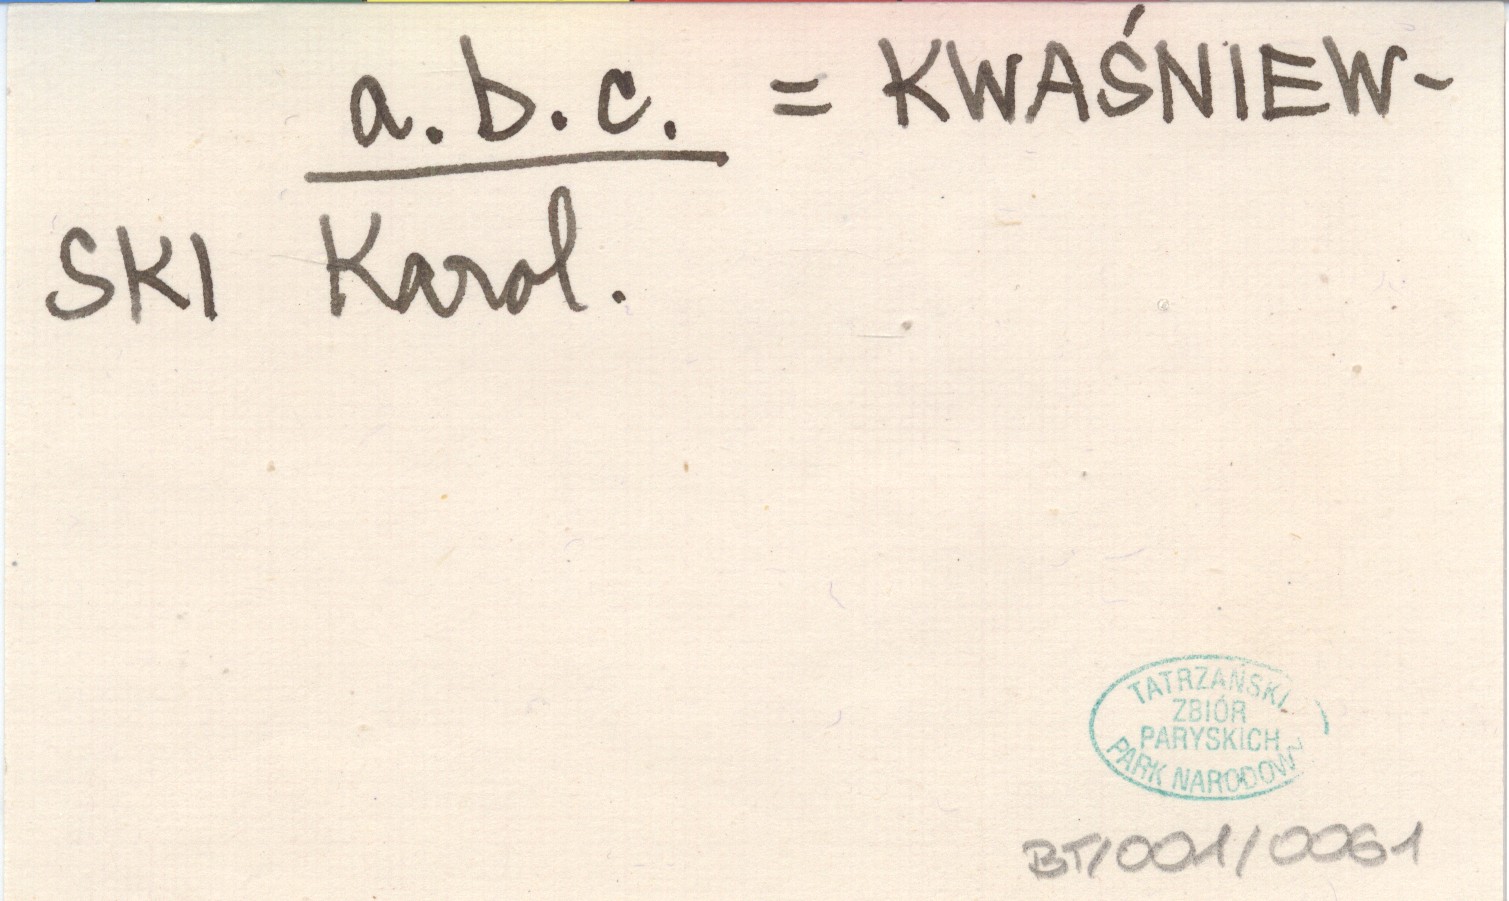 a.b.c. = KWAŚNIEW-
SKI Karol.
TATRZAŃSKI
ZBIÓR
PARYSKICH
PARK NARODOWY
BT/001/0061